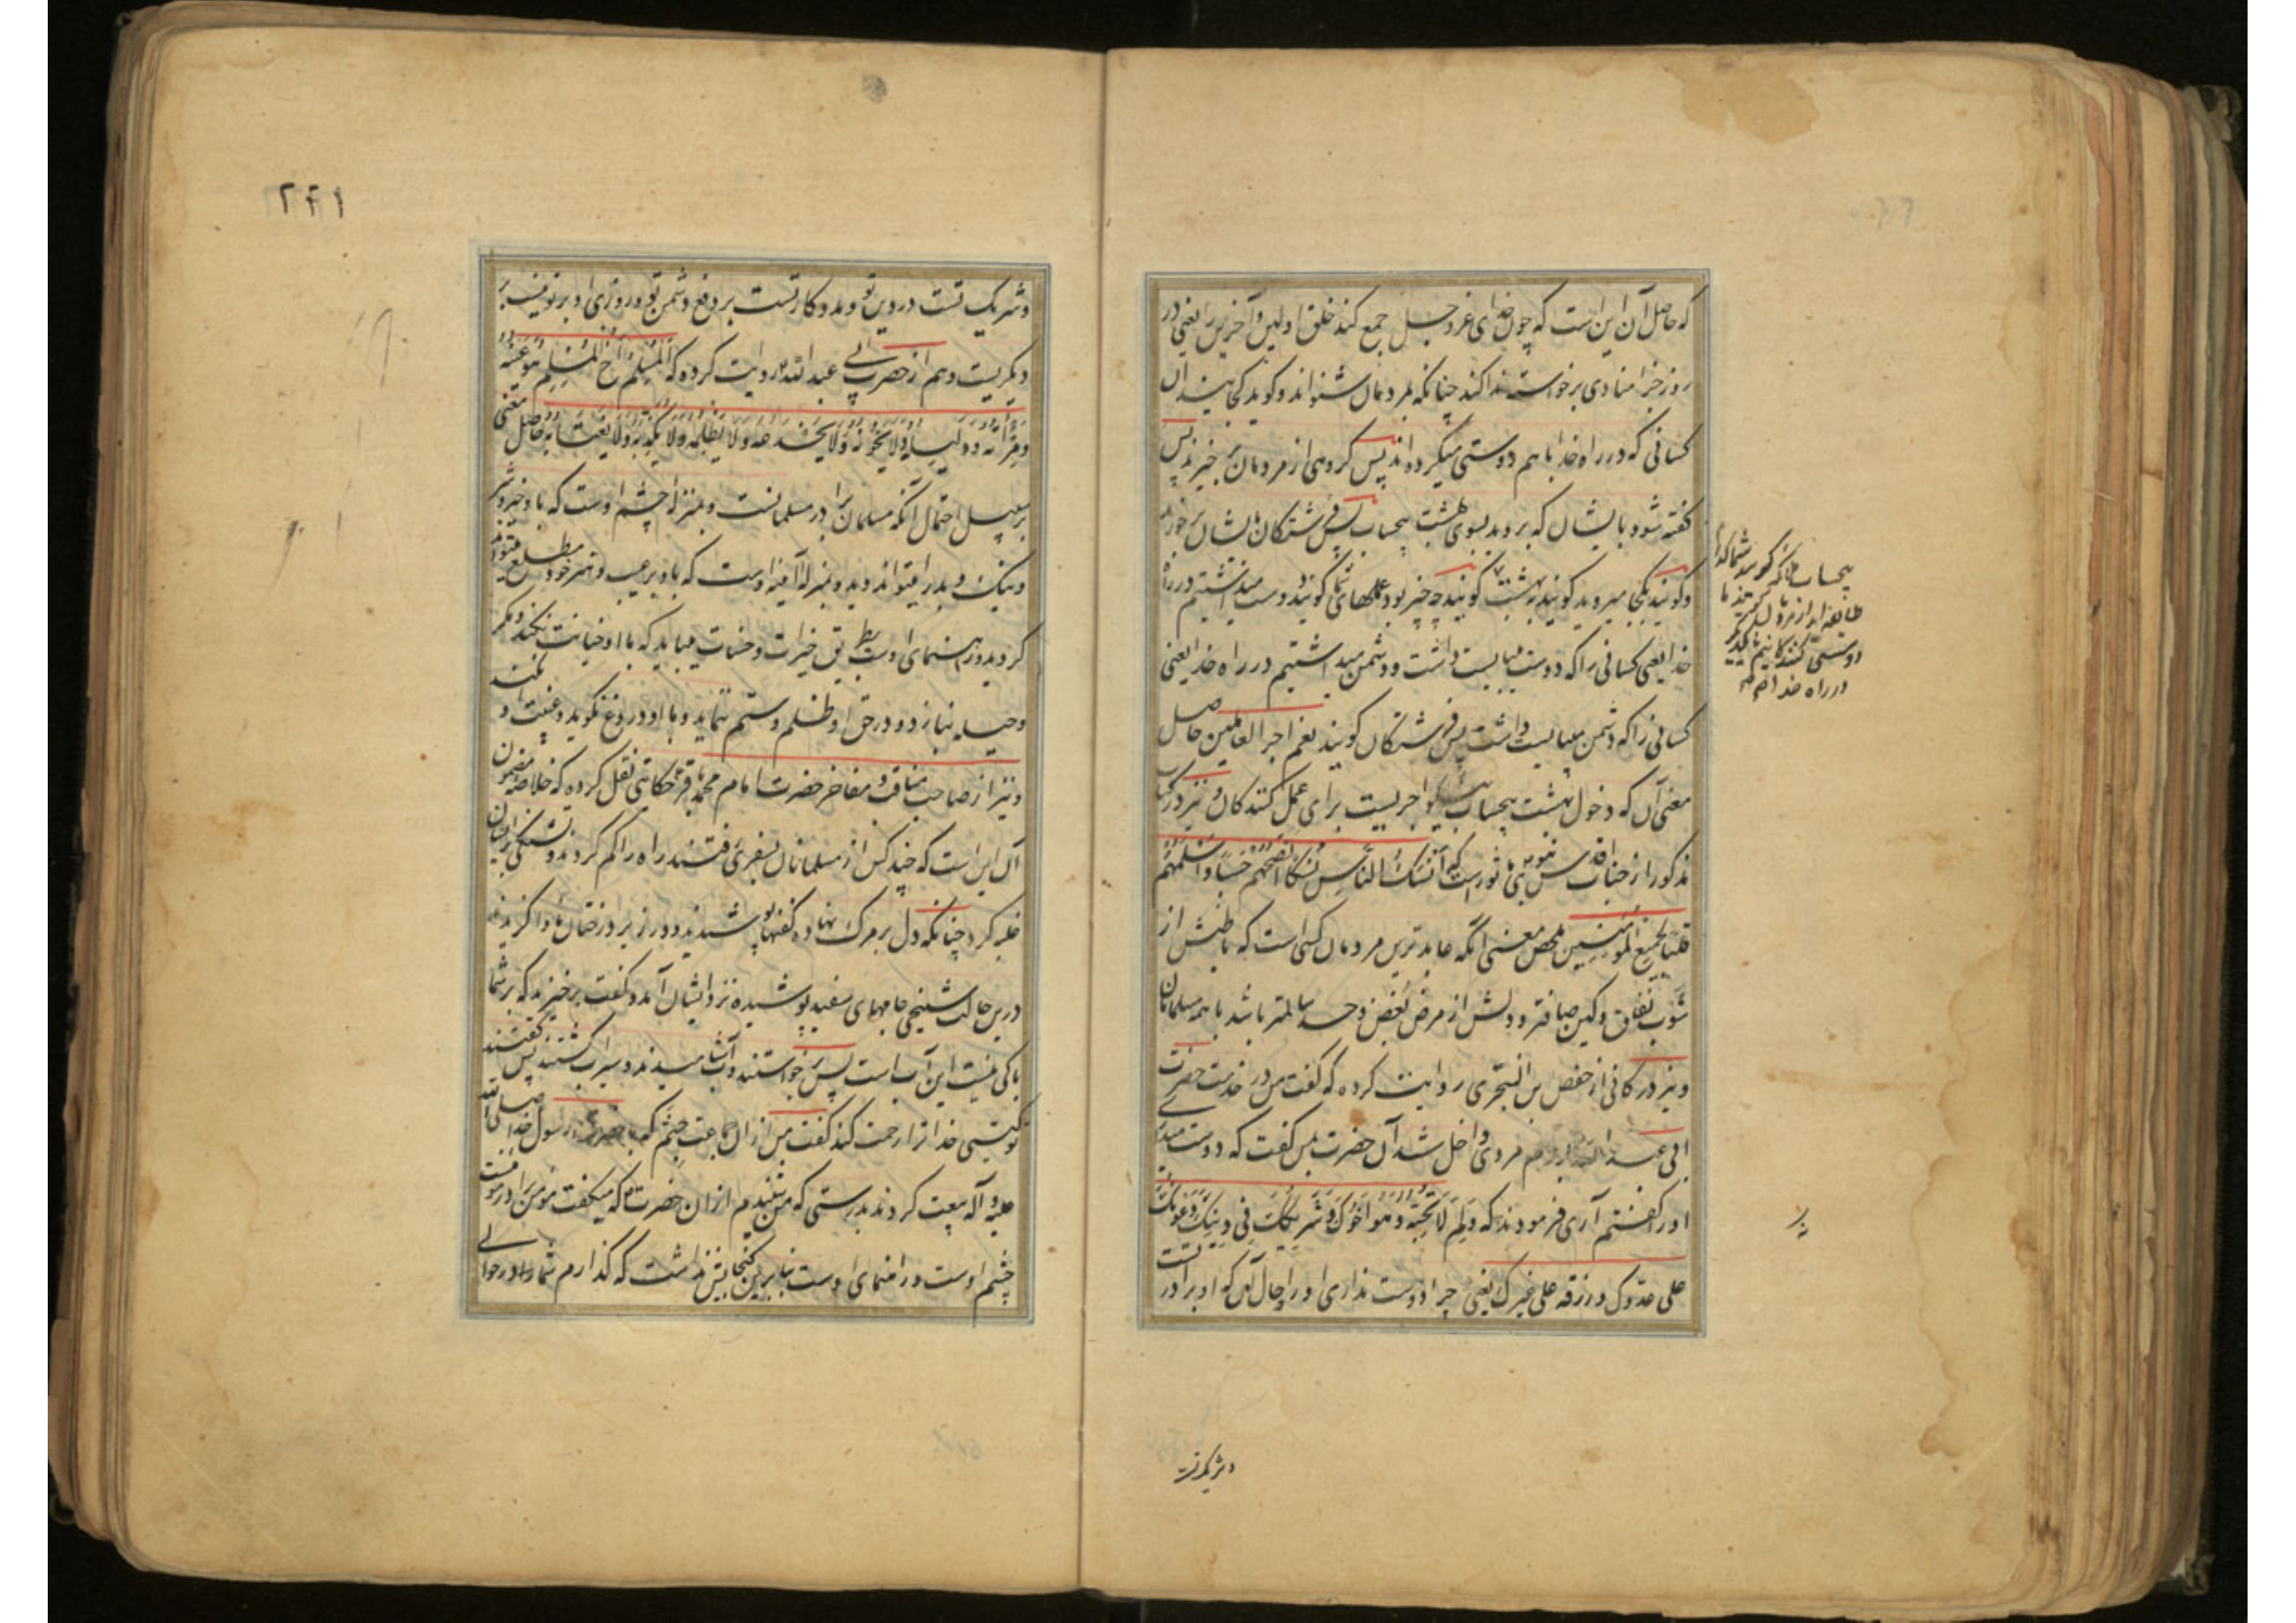 که حاصل آن این است که چون خدای عزوجل جمع کند خلق اولین و آخرین را یعنی در
روز جزا منادی برخواسته ندا کند چنانکه بمردمان شنواند و کوید کجایند آن
کسانی که در راه خدا باهم دوستی میکرده اند پس کروهی از مردمان برخیزند پس
کفته شود بایشان که بروید بسوی بهشت بیحساب پس فرشتکان بایشان برخورند
و کویند بکجا میروید کویند ببهشت کویند چه چیز بود عملهای شما کویند دوست میداشتیم در راه
خدا یعنی کسانی را که دوست میبایست داشت و دشمن میداشتیم در راه خدا یعنی
کسانی را که دشمن میبایست داشت پس فرشتکان کویند نعم اجر العاملین حاصل
معنی آن که دخول بهشت بیحساب اجریست برای عمل کنندکان و نیز در کتاب
مذکور از جناب اقدس نبوی ماثور است که أنسک الناس نسکا أنصحهم جیبا و أسلمهم
قلبا لجمیع المؤمنین ملخص معنی آنکه عابدترین مردمان کسی است که باطنش از
شوب نفاق و کین صافتر و دلش از مرض بغض و حسد سالمتر باشد با همه مسلمانان
و نیز در کافی از حفص بن البختری روایت کرده که کفت من در خدمت حضرت
ابی عبد الله بودم مردی داخل شد آن حضرت بمن کفت که دوست میداری
او را کفتم آری فرمودند که ولم لا تحبه وهو أخوک وشریکک فی دینک وعونک
علی عدوک ورزقه علی غیرک یعنی چرا دوست نداری او را و حال آن که او برادر تست
بیحساب
در راه خدا
و شریک تست در دین تو و مددکار تست بر دفع دشمن تو و روزی او بر تو نیست بر
دیکریست و هم از حضرت ابی عبد الله روایت کرده که المسلم أخ المسلم هو عینه
ومرآته ودلیله ولا یخونه ولا یخدعه ولا یظلمه ولا یکذبه ولا یغتابه حاصل معنی
بر سبیل احتمال آنکه مسلمان برادر مسلمانست و بمنزله چشم اوست که باو خیر و شر
و نیک و بد را میتواند دید و بمنزله آینه اوست که باو بر عیب و هنر خود مطلع میتواند
کردید و راهنمای اوست بطریق خیرات و حسنات میباید که با او خیانت نکند و مکر
و حیله نبازد و در حق او ظلم و ستم ننماید و با او دروغ نکوید و غیبت او نکند
و نیز از صاحب مناقب و مفاخر حضرت امام محمد باقر حکایتی نقل کرده که خلاصه مضمون
آن این است که چند کس از مسلمانان بسفری رفتند راه را کم کردند و تشنکی بر ایشان
غلبه کرد چنانکه دل بر مرک نهاده کفنها پوشیدند و در زیر درختان
درین حالت شیخی جامهای سفید پوشیده نزد ایشان آمد و کفت برخیزید که بر شما
باکی نیست این آب است پس برخواستند و آب آشامیدند و سیراب کشتند پس کفتند
تو کیستی خدا ترا رحمت کند کفت من از آن جماعت جنم که با حضرت رسول خدا صلی الله
علیه و آله بیعت کردند بدرستی که من شنیدم از آن حضرت که میکفت مؤمن برادر مؤمنست
چشم اوست و راهنمای اوست بنابرین کنجایش نداشت که کذارم شما را در حوالی
و شریک تست
۲۴۱